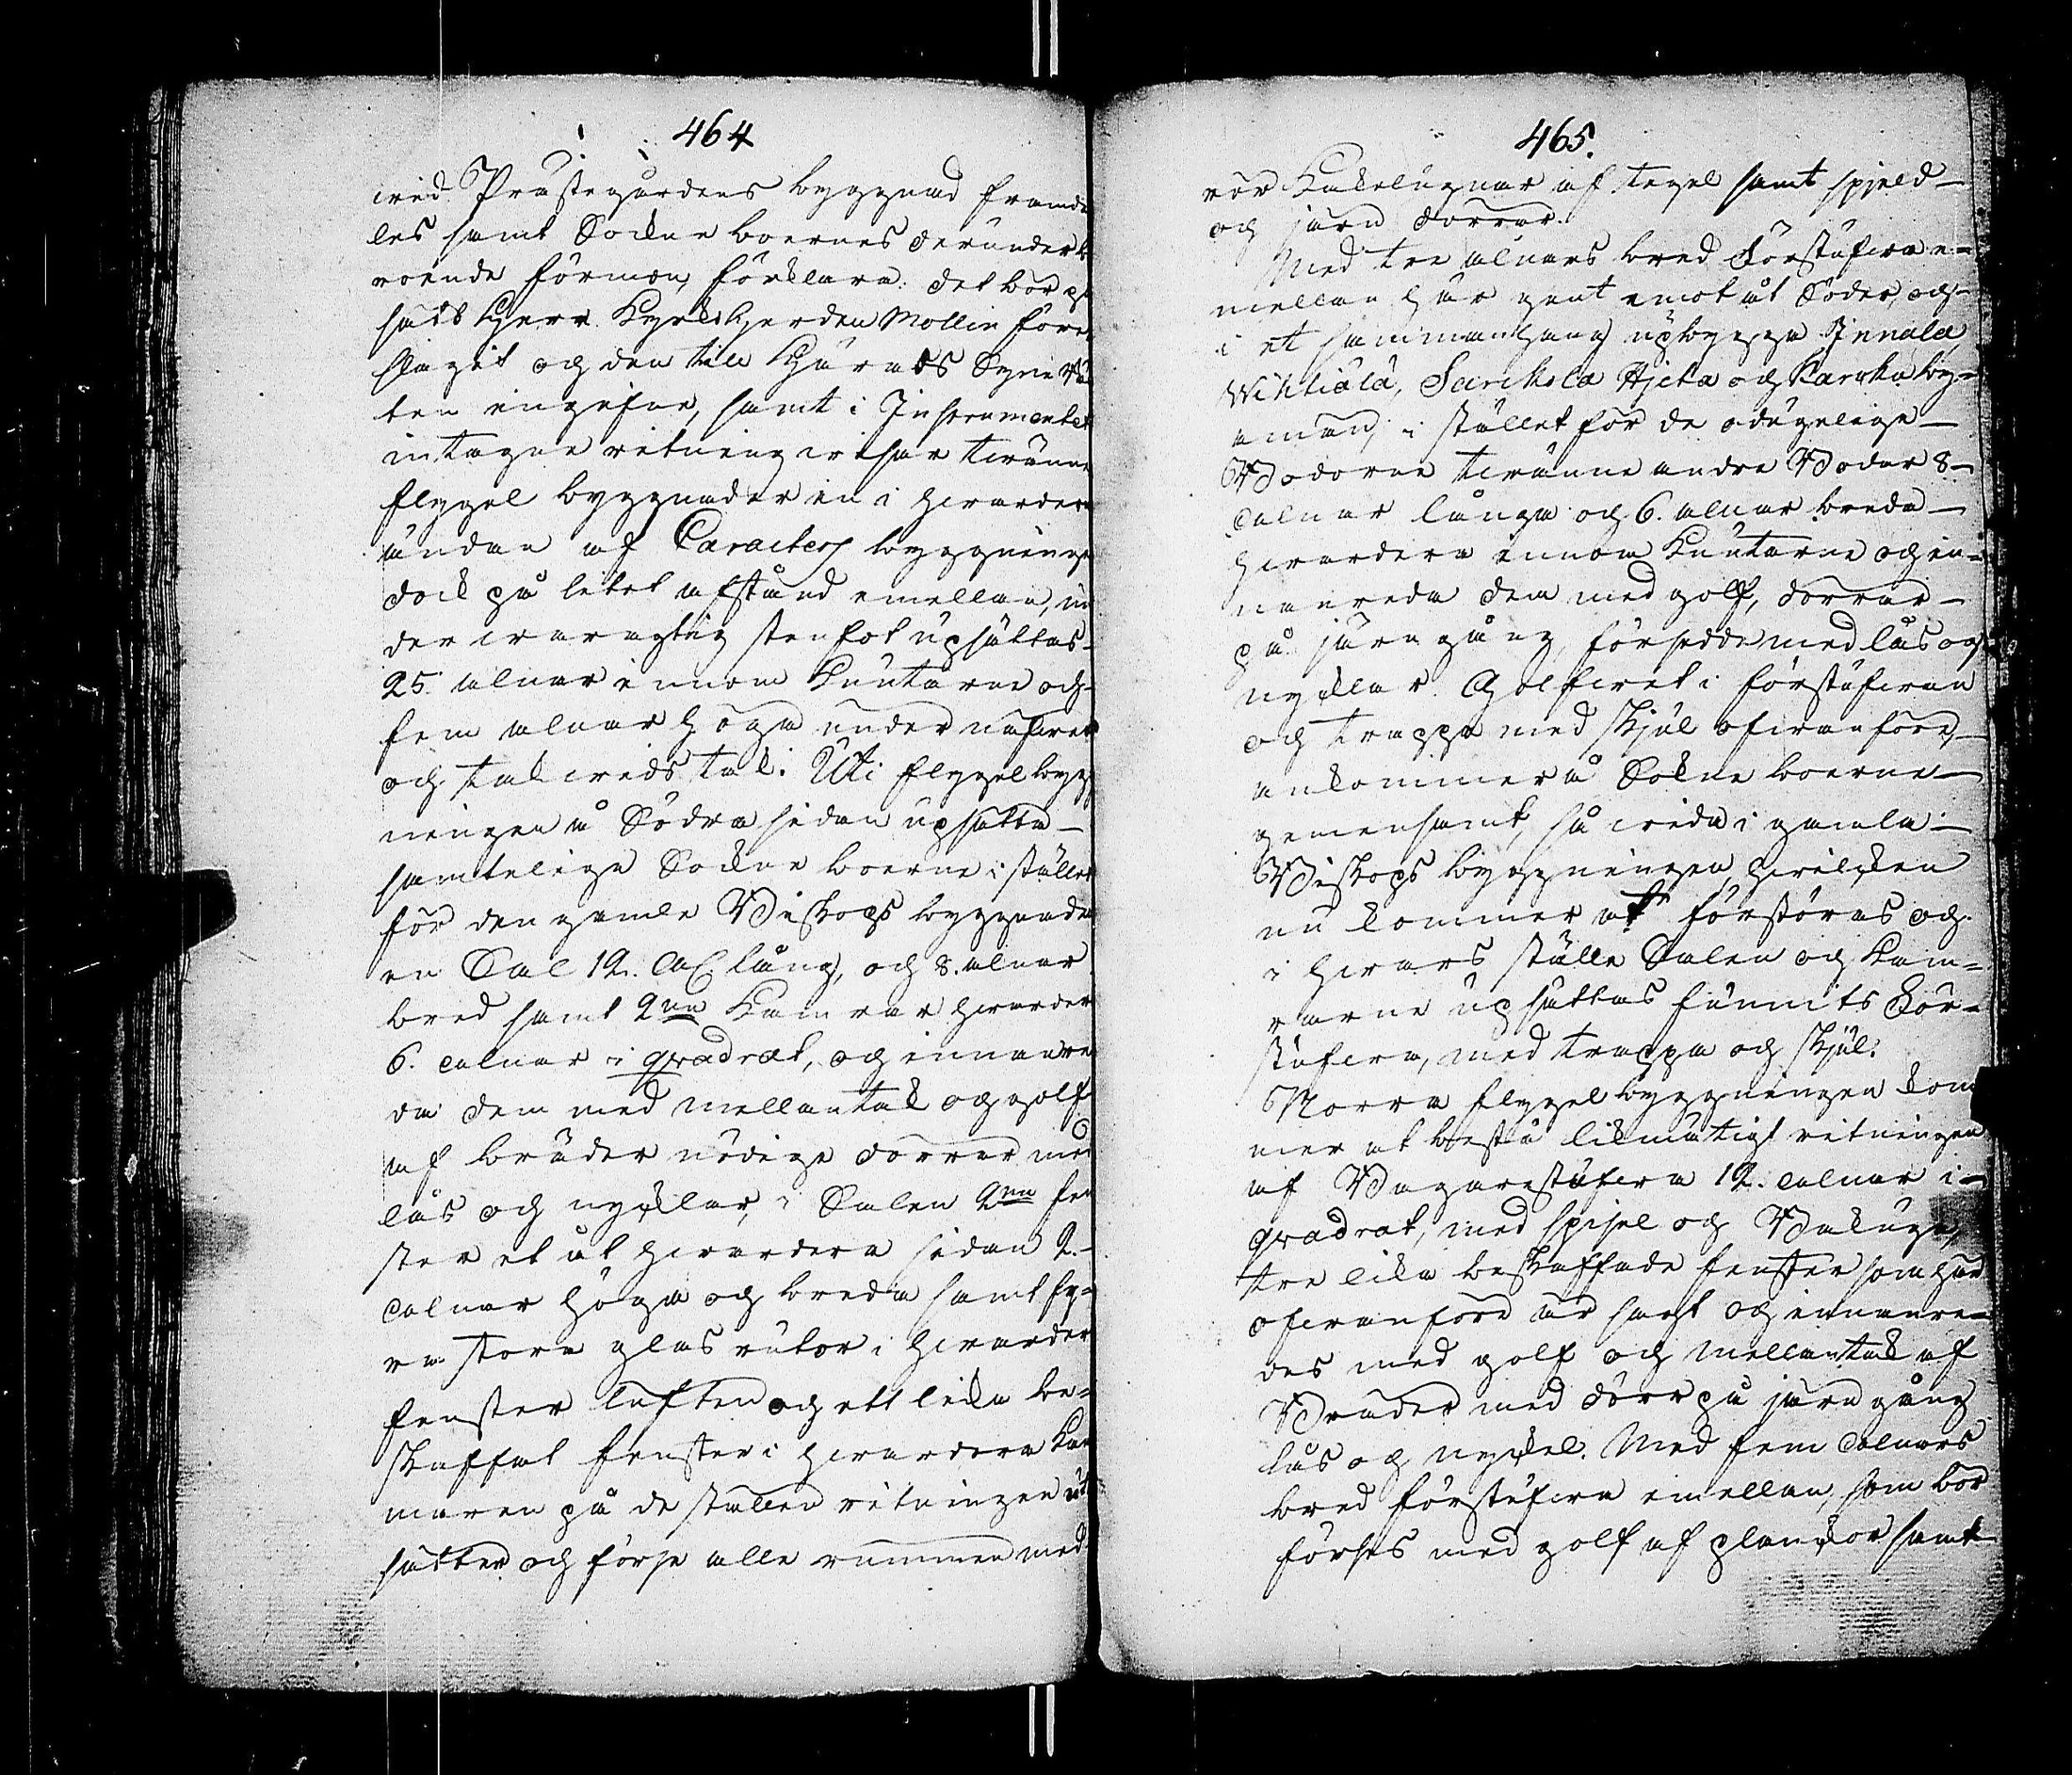 464
wid Prästegårdens byggnad framde
les samt Sockne boernes derunder be
roende förmon, förklara: det bör på
sätt Herr Kyrkoherden Mollin före
slagit og den till Härads Syne Rät
ten ingifne, samt i Instrumentet
intagne ritning utisar twänne
flygel byggnader en i hwardera
ändan af Caracters byggningen
dock på litet afstånd emellan, un
der waragtig stenfot upsättas
25. alnar innom Knutarne och
fem alnar höga under näfwret
og tak wids tak. Uti flygelbygg
ningen å Södra sidan upsätta
samtelige Sockne boerne i stället
för den gamle Biskops byggnaden
en Sal 12. Al. lång, och 8. alnar
bred samt 2ne Kamrar hwardera
6. alnar i qvadrat, og innanre
da dem med mellantak og golf
af bräder nödige dörrar med
lås og nycklar, i Salen 2ne fen
ster et åt hwardera sidan 2.
alnar höga og breda samt fy-
ra stora glas rutor i hwardera
fenster luften og ett lika be-
skaffat fenster i hwardera Kam
maren på de ställen ritningen ut
sätter og förse alla rummen med
465.
rör Kakelugnar af tegel samt spjeld
og järn dörrar.
Med tre alnars bred Förstufwa e-
mellan här gent emot åt Söder, og
i et sammanhang upbygga Innala
Wihtiälä, Sarikola Hjeta og Karoka by-
amän, i stället för de odugelige
Bodorne twänne andra Bodar 8
alnar långa og 6. alnar breda
hwardera innom Knutarne og in-
nanreda dem med golf, dörrar
på järn gång, försedde med lås og
nycklar. Golfwet i förstufwan
og trappa med skjul ofwanföre,
ankommer å Sokne boerne
gemensamt, så wida i gamla
Biskops byggningen, hwilcken
nu kommer at förstöras og
i hwars ställe Salen og Kam-
rarne upsättas funnits För-
stufwa, med trappa og skjul.
Norra flygelbyggningen kom
mer at bestå likmätigt ritningen
af Bagarestufwa 12. alnar i
qvadrat, med spisel og Bakugn,
tre lika beskaffade fenster som här
ofwanföre är sagt og innanre-
des med golf og mellantak af
Bräder med dörr på järn gång
lås og nyckel. Med fem alnars
bred förstufwa emellan, som bör
förses med golf af planckor samt